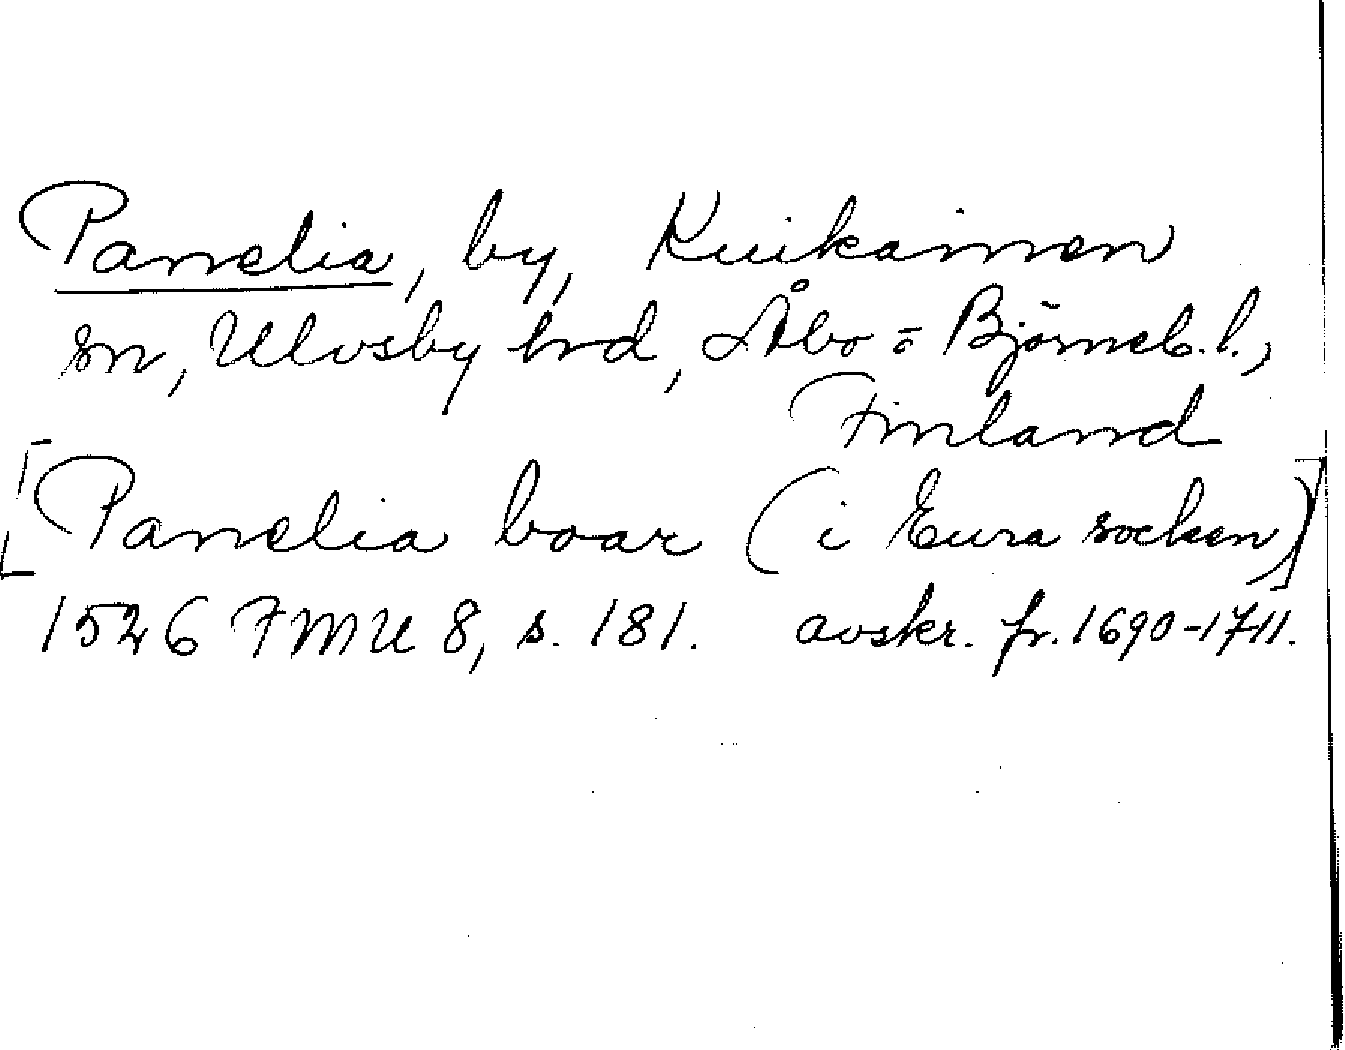 Panelia, by, Kiukainen
sn, Ulvsby hrd, Åbo-Björneb. l.,
Finland
[Panelia boar (i Eura socken)]
1526 FMU 8, s. 181. avskr. fr. 1690-1711.